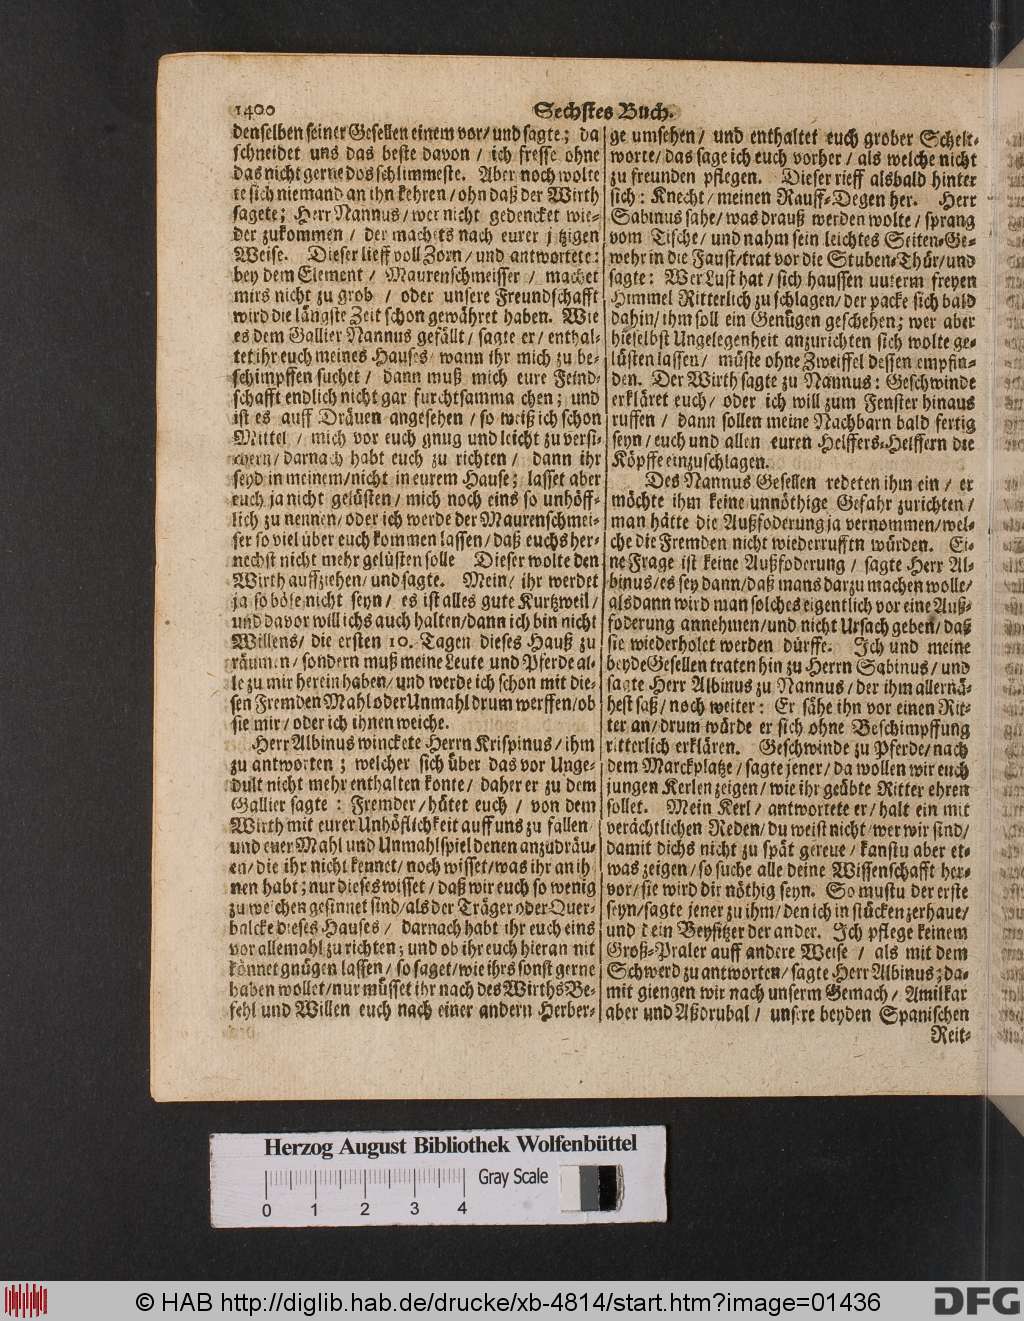 1400
Sechstes Buch.
denselben seiner Gesellen einem vor/ und sagte; da
schneidet uns das beste davon / ich fresse ohne
das nicht gerne dos schlimmeste. Aber noch wolte
te sich niemand an ihn kehren/ ohn daß der Wirth
sagete; Herr Nannus/ wer nicht gedencket wie-
der zukommen / der machets nach eurer j tzigen
Weise. Dieser lieff voll Zorn/ und antwortete:
bey dem Element / Maurenschmeisser / machet
mirs nicht zu grob / oder unsere Freundschafft
wird die längste Zeit schon gewähret haben. Wie
es dem Gallier Nannus gefällt/ sagte er/ enthal-
tet ihr euch meines Hauses/ wann ihr mich zu be-
schimpffen suchet / dann muß mich eure Feind-
schafft endlich nicht gar furchtsamma chen; und
ist es auff Dräuen angesehen / so weiß ich schon
Mittel / mich vor euch gnug und leicht zu versi-
chern/ darnach habt euch zu richten / dann ihr
seyd in meinem/ nicht in eurem Hause; lasset aber
euch ja nicht gelüsten/ mich noch eins so unhöff-
lich zu nennen/ oder ich werde der Maurenschmei-
ser so viel über euch kommen lassen/ daß euchs her-
nechst nicht mehr gelüsten solle Dieser wolte den
Wirth auffziehen/ und sagte. Mein/ ihr werdet
ja so böse nicht seyn/ es ist alles gute Kurtzweil/
und davor will ichs auch halten/ dann ich bin nicht
Willens/ die ersten 10. Tagen dieses Hauß zu
räumen/ sondern muß meine Leute und Pferde al-
le zu mir herein haben/ und werde ich schon mit die-
sen Fremden Mahl oder Unmahl drum werffen/ ob
sie mir/ oder ich ihnen weiche.
Herr Albinus winckete Herrn Krispinus/ ihm
zu antworten ; welcher sich über das vor Unge-
dult nicht mehr enthalten konte/ daher er zu dem
Gallier sagte : Fremder/ hütet euch / von dem
Wirth mit eurer Unhöflichkeit auff uns zu fallen/
und euer Mahl und Unmahlspiel denen anzudräu-
en/ die ihr nicht kennet/ noch wisset/ was ihr an ih-
nen habt; nur dieses wisset/ daß wir euch so wenig
zu weichen gesinnet sind/ als der Träger oder Quer-
balcke dieses Hauses / darnach habt ihr euch eins
vor allemahl zu richten; und ob ihr euch hieran nit
könnet gnügen lassen/ so saget/ wie ihrs sonst gerne
haben wollet/ nur müsset ihr nach des Wirths Be-
fehl und Willen euch nach einer andern Herber-
ge umsehen/ und enthaltet euch grober Schelt-
worte/ das sage ich euch vorher/ als welche nicht
zu freunden pflegen. Dieser rieff alsbald hinter
sich: Knecht/ meinen Rauff-Degen her. Herr
Sabinus sahe/ was drauß werden wolte/ sprang
vom Tische/ und nahm sein leichtes Seiten-Ge-
wehr in die Faust/ trat vor die Stuben-Thür/ und
sagte: Wer Lust hat/ sich haussen uuterm freyen
Himmel Ritterlich zu schlagen/ der packe sich bald
dahin/ ihm soll ein Genügen geschehen; wer aber
hieselbst Ungelegenheit anzurichten sich wolte ge-
lüsten lassen/ müste ohne Zweiffel dessen empfin-
den. Der Wirth sagte zu Nannus: Geschwinde
erkläret euch/ oder ich will zum Fenster hinaus
ruffen / dann sollen meine Nachbarn bald fertig
seyn/ euch und allen euren Helffers-Helffern die
Köpffe einzuschlagen.
Des Nannus Gesellen redeten ihm ein/ er
möchte ihm keine unnöthige Gefahr zurichten/
man hätte die Außfoderung ja vernommen/ wel-
che die Fremden nicht wiederrufftn würden. Ei-
ne Frage ist keine Außfoderung / sagte Herr Al-
binus/ es sey dann/ daß mans darzu machen wolle/
alsdann wird man solches eigentlich vor eine Auß-
foderung annehmen/ und nicht Ursach geben/ daß
sie wiederholet werden dürffe. Ich und meine
beyde Gesellen traten hin zu Herrn Sabinus/ und
sagte Herr Albinus zu Nannus/ der ihm allernä-
hest saß/ noch weiter: Er sähe ihn vor einen Rit-
ter an/ drum würde er sich ohne Beschimpffung
ritterlich erklären. Geschwinde zu Pferde/ nach
dem Marckplatze/ sagte jener/ da wollen wir euch
jungen Kerlen zeigen/ wie ihr geübte Ritter ehren
sollet. Mein Kerl/ antwortete er/ halt ein mit
verächtlichen Reden/ du weist nicht/ wer wir sind/
damit dichs nicht zu spät gereue/ kanstu aber et-
was zeigen/ so suche alle deine Wissenschafft her-
vor/ sie wird dir nöthig seyn. So mustu der erste
seyn/ sagte jener zu ihm/ den ich in stücken zerhaue/
und dein Beysitzer der ander. Ich pflege keinem
Groß-Praler auff andere Weise / als mit dem
Schwerd zu antworten/ sagte Herr Albinus; da-
mit giengen wir nach unserm Gemach/ Amilkar
aber und Aßdrubal / unsere beyden Spanischen
Reit-
Herzog August Bibliothek Wolfenbüttel
Gray Scale
0 1 2 3 4
© HAB http://diglib.hab.de/drucke/xb-4814/start.htm?image=01436
DFG